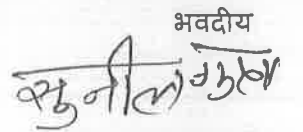 भवदीय
सुनील